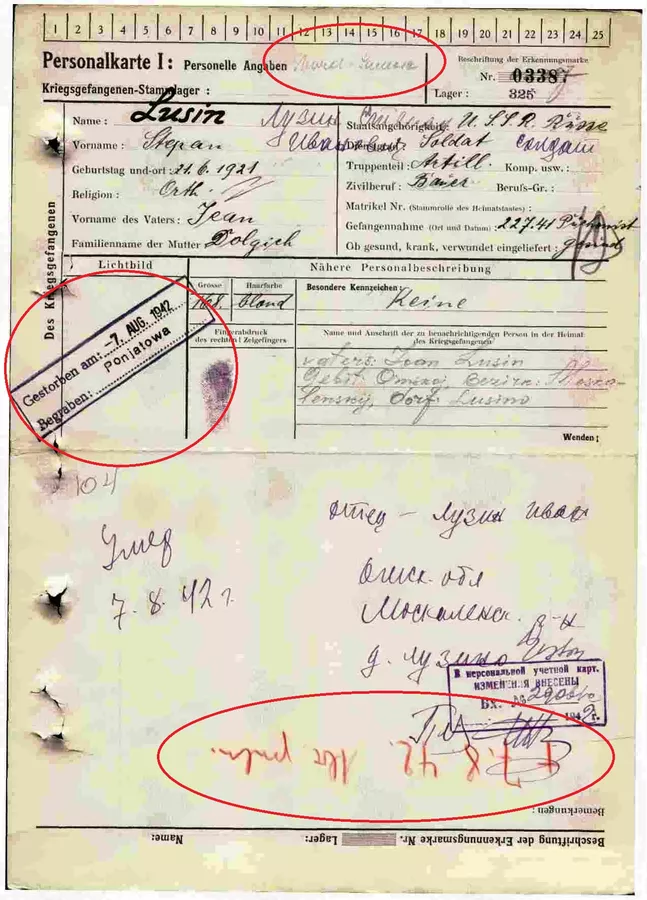 1 2 3 4 5 6 7 8 9 10 11 12 13 14 15 16 17 18 19 20 21 22 23 24 25
Personalkarte I: Personelle Angaben
Beschriftung der Erkennungsmarke
Nr. 0338
Kriegsgefangenen-Stammlager:
Lager: 325
Des Kriegsgefangenen
Name: Lusin Лузин
Staatsangehörigkeit: U.S.S.R. Russe
Vorname: Stepan Иванович
Dienstgrad: Soldat солдат
Geburtstag und -ort: 21.6.1921
Truppenteil: Artill. Komp. usw.:
Religion: Orth.
Zivilberuf: Bauer Berufs-Gr.:
Vorname des Vaters: Iean
Matrikel Nr. (Stammrolle des Heimatstaates):
Gefangennahme (Ort und Datum): 22.7.41
Familienname der Mutter: Dolgich
Ob gesund, krank, verwundet eingeliefert: gesund
Lichtbild
Nähere Personalbeschreibung
Grösse Haarfarbe
168. blond
Besondere Kennzeichen:
Keine
Fingerabdruck
des rechten! Zeigefingers
Name und Anschrift der zu benachrichtigenden Person in der Heimat
des Kriegsgefangenen
Vaters: Iean Lusin
Gebit: Omskoj, Bezirk:
lenskij, Dorf: Lusino
Wenden:
Gestorben am: -7. AUG. 1942
Begraben: Poniatowa
104
Умер
7.8.42 г.
отец – Лузин Иван
Омск. обл
Москаленск. р-н
д. Лузино
В персональной учетной карт.
ИЗМЕНЕНИЯ ВНЕСЕНЫ
Вх. №
194 г.
7.8.42.
Bemerkungen:
Beschriftung der Erkennungsmarke Nr. Lager: Name: